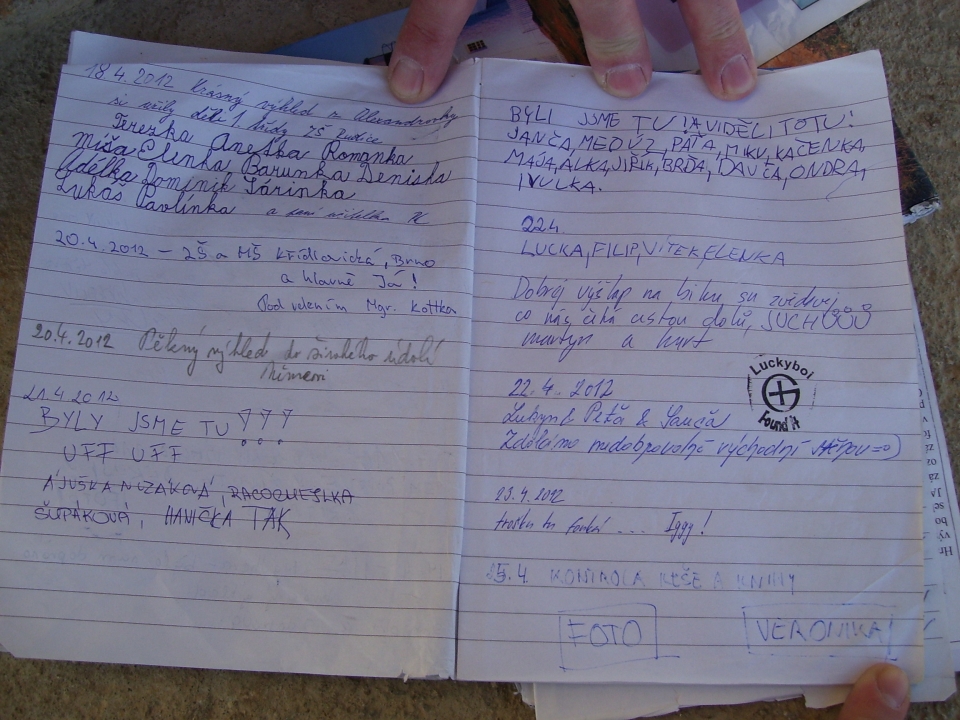 18.4.2012 Krásný výhled z Alexandrovky
si užily děti 1. třídy ZŠ
Terezka Anežka Romanka
Míša Elenka Barunka Deniska
Adélka Dominik Tárinka
Lukáš Pavlínka a paní učitelka
20.4.2012 – ZŠ a MŠ Křídlovická, Brno
a hlavně Já!
Pod vedením Mgr. Kottka
20.4.2012 Pěkný výhled do širokého údolí
21.4.2012
BYLY JSME TU !!!
UFF UFF
HANIČKA TAK
BYLI JSME TU! A VIDĚLI TOTU!
JANČA, MEDÚZ, PÁŤA, MIKU, KAČENKA,
MÁJA, ALKA, JIŘÍK, BRĎA, DAVČA, ONDRA,
IVULKA.
22.4.
LUCKA, FILIP, VÍTEK, ELENKA
Dobrej výšlap na biku su zvědavej
co nás čeká cestou dolů, SUCHŮŮŮ
martyn a kurt
Luckyboi
Found it
22.4.2012
& Peťa & Janča
Zdoláno nedobrovolně východní stěnou =)
23.4.2012
trošku tu fouká .... Iggy!
25.4 KONTROLA KEŠE A KNIHY
FOTO VERONIKA